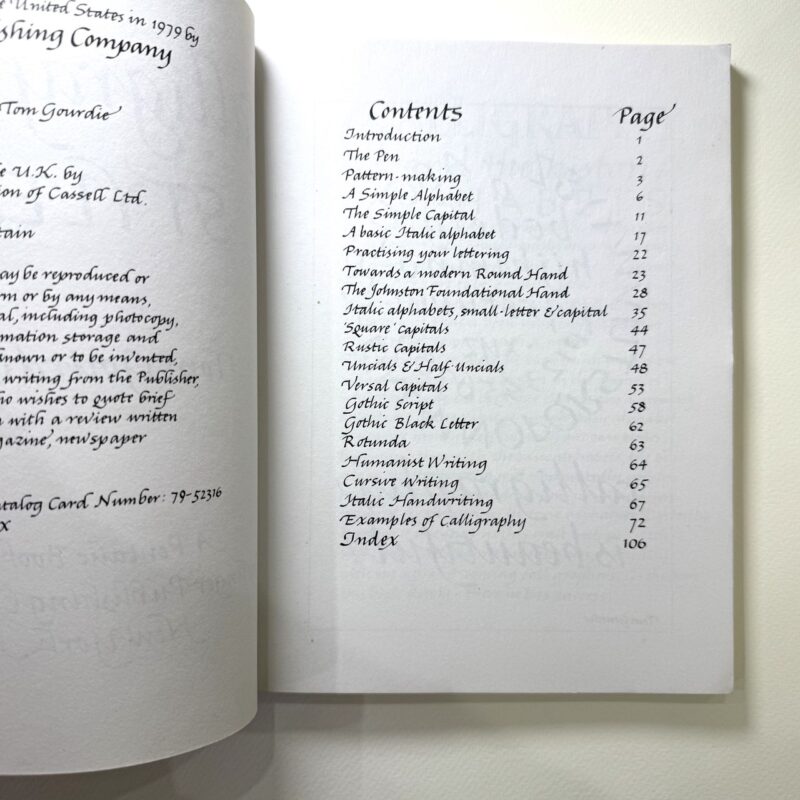 United States in 1979 by
shing Company
Tom Gourdie
U.K. by
ion of Cassell Ltd.
tain
ay be reproduced or
rm or by any means,
al, including photocopy,
mation storage and
known or to be invented,
writing from the Publisher,
ho wishes to quote brief
with a review written
gazine, newspaper
atalog Card Number: 79-52316
X
Contents Page
Introduction 1
The Pen 2
Pattern-making 3
A Simple Alphabet 6
The Simple Capital 11
A basic Italic alphabet 17
Practising your lettering 22
Towards a modern Round Hand 23
The Johnston Foundational Hand 28
Italic alphabets, small-letter & capital 35
'Square' capitals 44
Rustic Capitals 47
Uncials & Half-Uncials 48
Versal Capitals 53
Gothic Script 58
Gothic Black Letter 62
Rotunda 63
Humanist Writing 64
Cursive Writing 65
Italic Handwriting 67
Examples of Calligraphy 72
Index 106